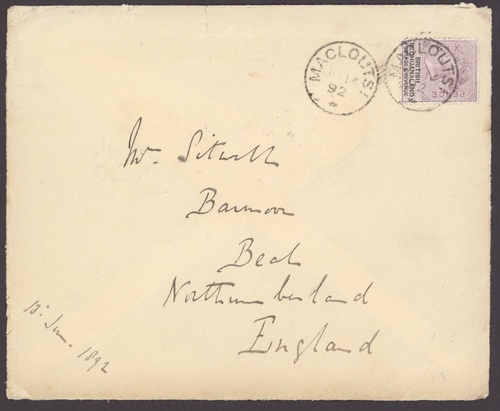 MACLOUTSI
92
MACLOUTSI
BRITISH
BECHUANALAND
Mr. Sitwell
Barmoor
Beal
Northumberland
England
13. Jun. 1892